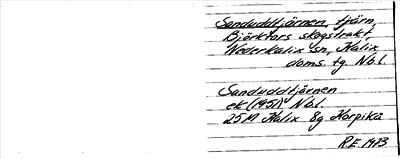 Sanduddtjärnen, tjärn,
Björkfors skogstrakt,
Nederkalix sn, Kalix
doms. tg. Nbl.
Sanduddtjärnen
ek (1951) Nbl.
25 M Kalix 8g Korpika
R.E. 1973